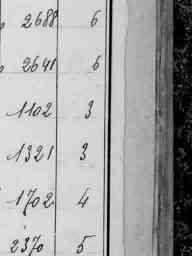 2688 6
2641 6
1102 3
1321 3
1702 4
2370 5